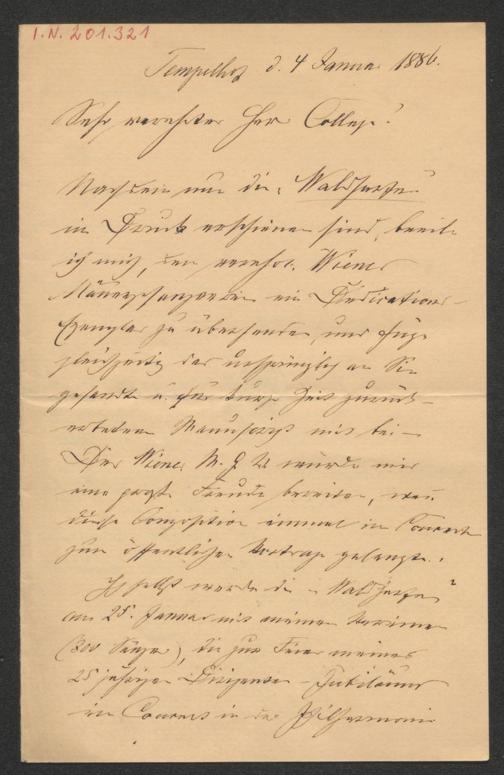 I.N. 201.321
Tempelhof d. 4 Januar 1886.
Sehr verehrter Herr College!
Nachdem nun die „Waldharfe“
im Druck erschienen sind, beeile
ich mich, dem verehrl. Wiener
Männergesangverein ein Dedications-
Exemplar zu übersenden, und füge
gleichzeitig das ursprünglich an Sie
gesandte u. für kurze Zeit zurück-
erbetene Manuscript mit bei –
Der Wiener M. G. V. würde mir
eine große Freude bereiten, wenn
diese Composition einmal im Concert
zum öffentlichen Vortrage gelangte.
Ich selbst werde die „Waldharfe“
am 25. Januar mit meinen Vereinen
(300 Sänger), die zur Feier meines
25 jährigen Dirigenten-Jubiläums
im Concert in der Philharmonie